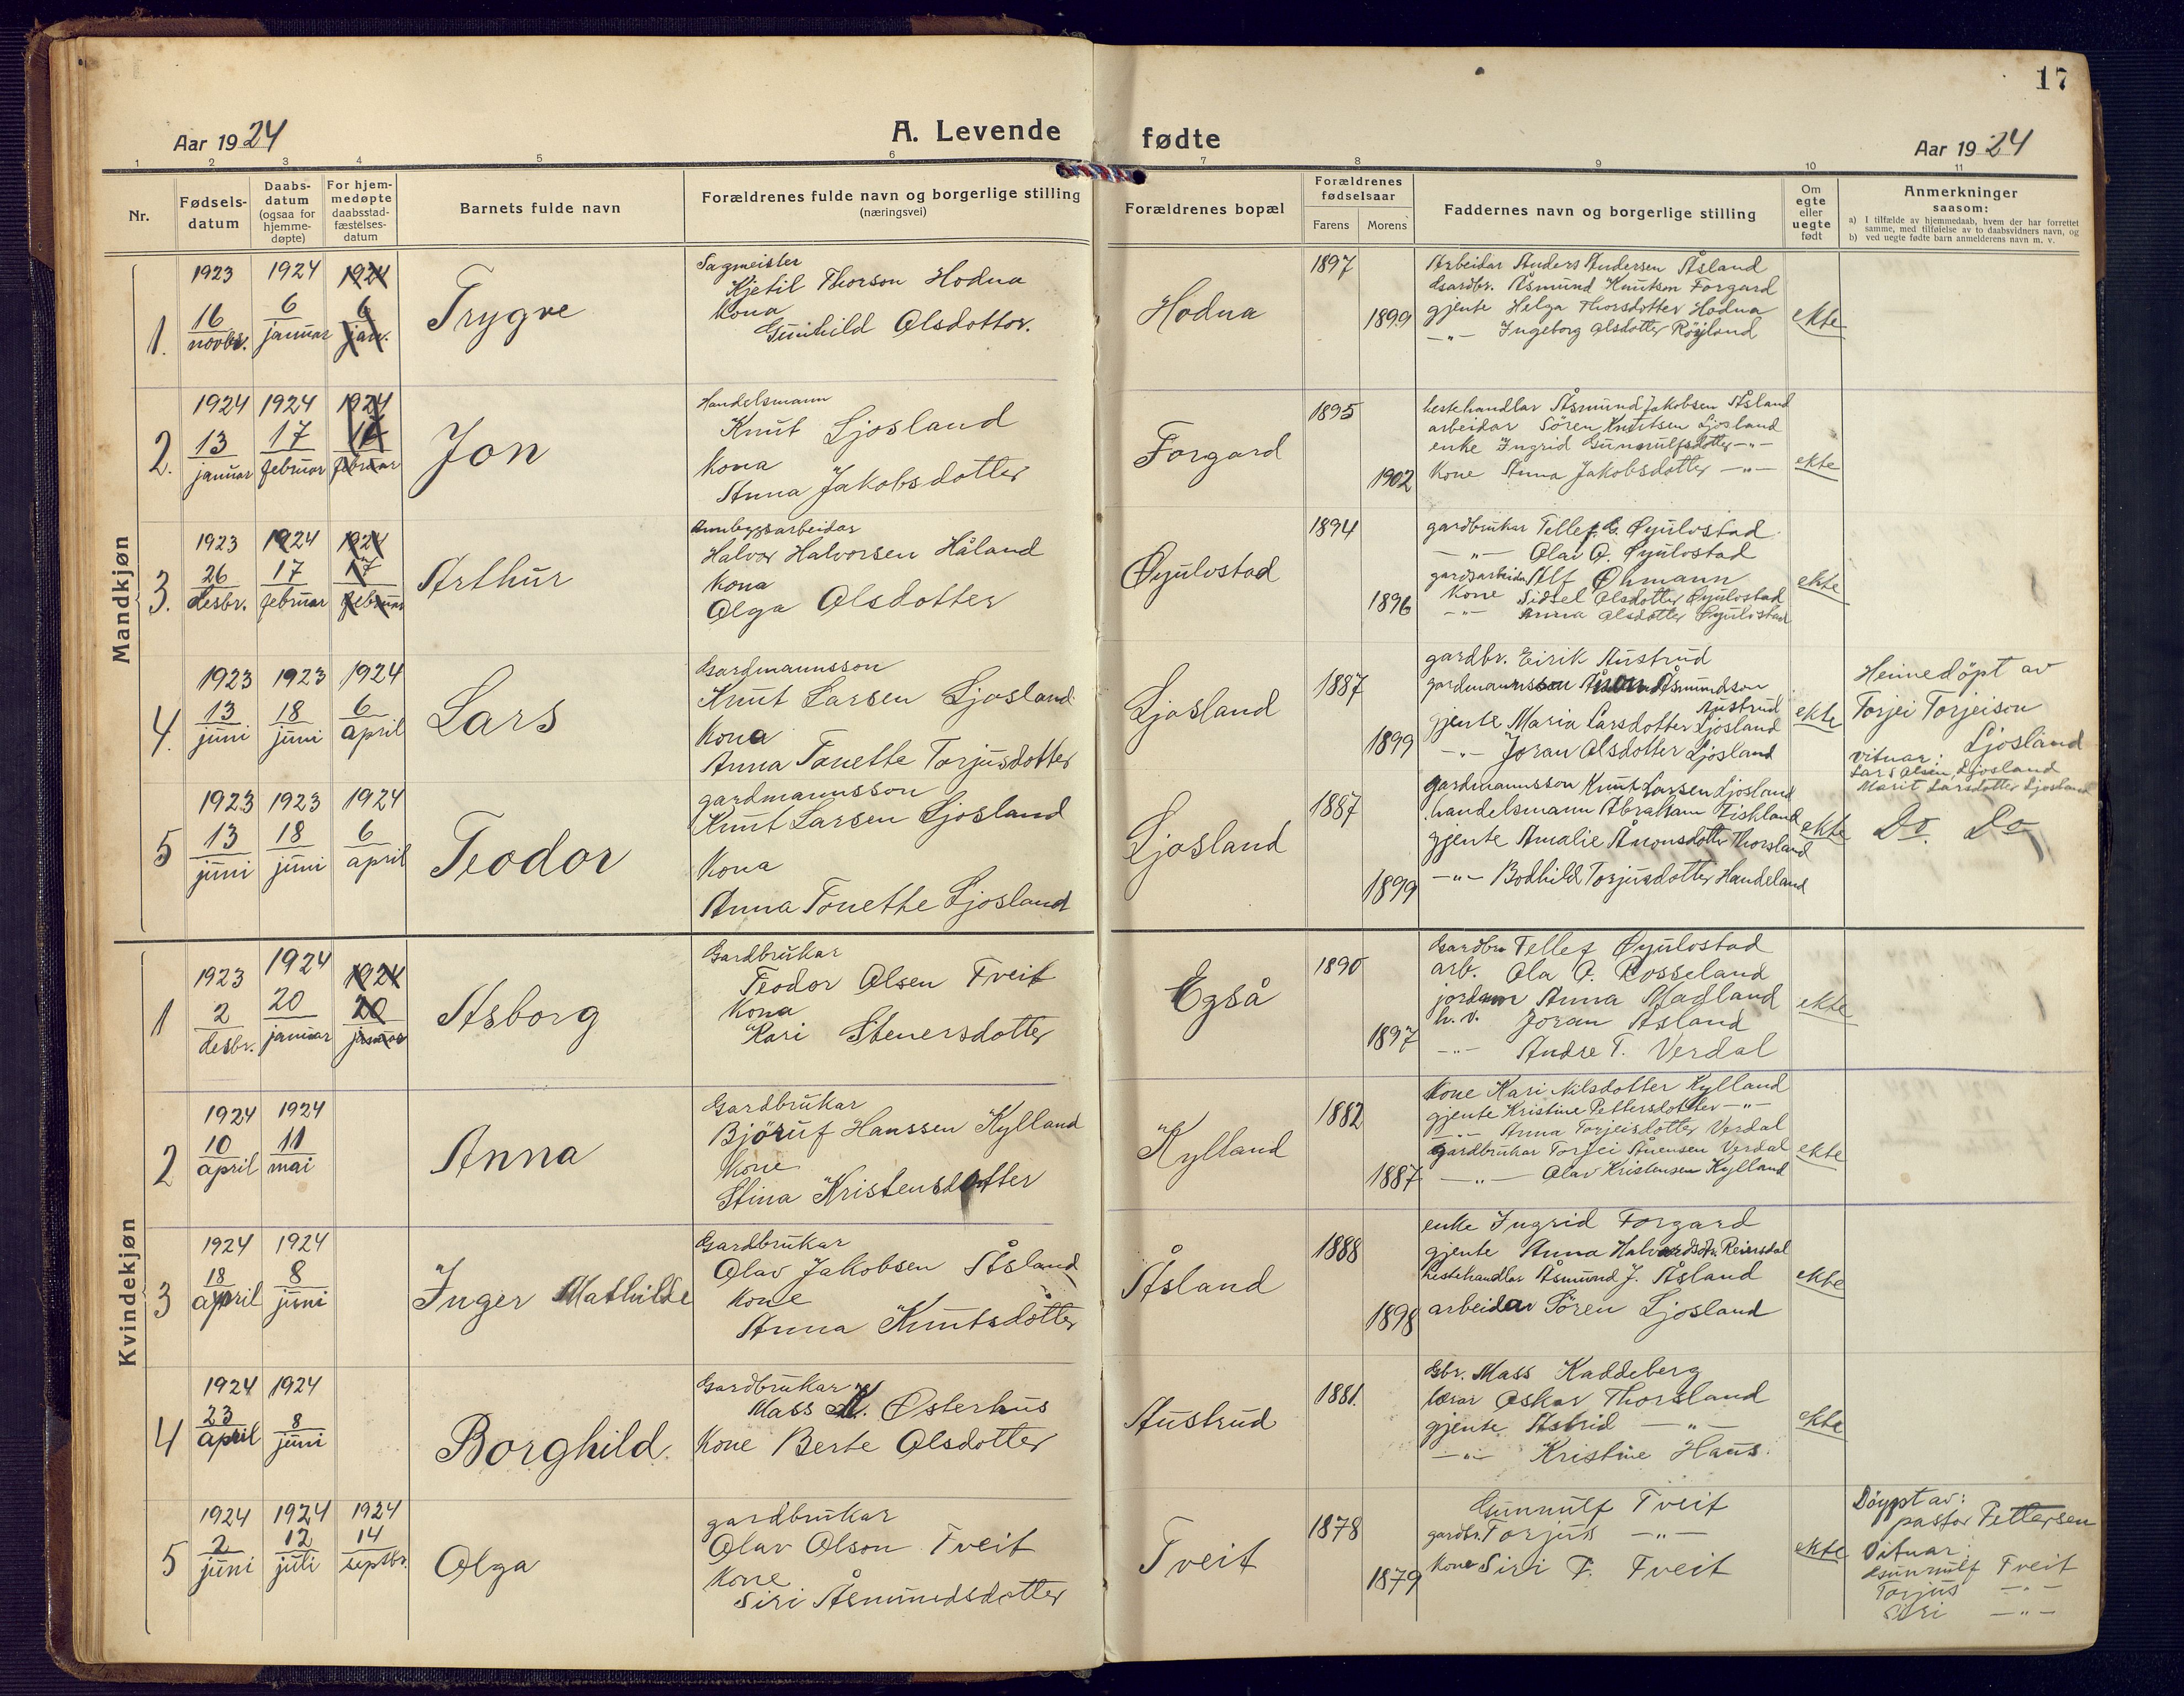 17
Aar 1924
A. Levende fødte
Aar 1924
1 2 3 4 5 6 7 8 9 10 11
Nr.
Fødsels-
datum
Daabs-
datum
(ogsaa for
hjemme-
døpte)
For hjem-
medøpte
daabsstad-
fæstelses-
datum
Barnets fulde navn
Forældrenes fulde navn og borgerlige stilling
(næringsvei)
Forældrenes bopæl
Forældrenes
fødselsaar
Farens Morens
Faddernes navn og borgerlige stilling
Om
egte
eller
uegte
født
Anmerkninger
saasom:
a) I tilfælde av hjemmedaab, hvem der har forrettet
samme, med tilføielse av to daabsvidners navn, og
b) ved uegte fødte barn anmelderens navn m. v.
Mandkjøn
1.
1923
16
novbr.
1924
6
januar
1924
6
jan.
Trygve
Sagmeister
Kjetil Thorson Hodna
Kona
Gunhild Olsdotter.
Hodna
1897
1899
Arbeidar Anders Andersen Åsland
Gardbr. Åsmund Knutsen Forgard
gjente Helga Thorsdotter Hodna
—"— Ingeborg Olsdotter Röyland
ekte
2.
1924
13
januar
1924
17
februar
1924
17
februar
Jon
Handelsmann
Knut Ljosland
Kona
Anna Jakobsdotter
Forgard
1895
1902
hestehandlar Åsmund Jakobsen Åsland
arbeidar Sören Knutsen Ljosland
enke Ingrid Gunnulfsdotter —"—
Kone Anna Jakobsdotter —"—
ekte
3.
1923
26
desbr.
1924
17
februar
1924
17
februar
Arthur
Anleggsarbeidar
Halvor Halvorsen Håland
Kona
Olga Olsdotter
Øyulvstad
1894
1896
gardbrukar Tellef G. Øyulvstad
—"— Olav O. Øyulvstad
gardsarbeidar Alf Öhmann
Kone Sidsel Olsdotter Øyulvstad
—"— Anna Olsdotter Øyulvstad
ekte
4.
1923
13
juni
1923
18
juni
1924
6
april
Lars
Gardmannsson
Knut Larsen Ljosland
Kona
Anna Tonette Torjusdotter
Ljosland
1887
1899
gardbr. Eirik Austrud
gardmannsson Ånon Åsmundson
Austrud
gjente Maria Larsdotter Ljosland
—"— Joran Olsdotter Ljosland
ekte
Heimedöpt av
Torjei Torjeison
Ljosland
vitnar:
Lars Olsen, Ljosland
Marit Larsdotter Ljosland
5
1923
13
juni
1923
18
juni
1924
6
april
Teodor
gardmannsson
Knut Larsen Ljosland
Kona
Anna Tonette Ljosland
Ljosland
1887
1899
gardmannsson Knut Larsen Ljosland
handelsmann Abraham Fiskland
gjente Amalie Ånonsdotter Thorsland
—"— Bodhild Torjusdotter Handeland
ekte
Do. Do
Kvindekjøn
1
1923
2
desbr.
1924
20
januar
1924
20
januar
Asborg
Gardbrukar
Teodor Olsen Tveit
Kona
Kari Stenersdotter
Egså
1890
1897
Gardbr. Tellef Øyulvstad
arb. Ola O. Rosseland
jordmor Anna Madland
h. v. Joran Åsland
—"— Andre T. Verdal
ekte
2
1924
10
april
1924
11
mai
Anna
Gardbrukar
Björuf Hanssen Kylland
Kone
Stina Kristensdotter
Kylland
1882
1887
Kone Kari Nilsdotter Kylland
gjente Kristine Pettersdotter —"—
—"— Anna Torjeisdotter Verdal
gardbrukar Torjei Ånensen Verdal
—"— Olav Kristensen Kylland
ekte
3
1924
18
april
1924
8
juni
Inger Mathilde
Gardbrukar
Olav Jakobsen Åsland
Kone
Anna Knutsdotter
Åsland
1888
1898
enke Ingrid Forgard
gjente Anna Halvardsdtr. Reiersdal
hestehandlar Åsmund J. Åsland
arbeidar Sören Ljosland
ekte
4
1924
23
april
1924
8
juni
Borghild.
Gardbrukar
Mass M. Østerhus
Kone Berte Olsdotter
Austrud
1881.
Gbr. Mass Kaddeberg
lærar Oskar Thorsland
gjente Astrid —"—
—"— Kristine Haus.
ekte
5
1924
2
juni
1924
12
juli
1924
14
septbr.
Olga
gardbrukar
Olav Olson Tveit
Kone
Siri Åsmundsdotter
Tveit
1878
1879
Gunnulf Tveit
gardbr. Torjus —"—
Kone Siri T. Tveit
ekte
Döypt av:
pastor Pettersen
Vitnar:
Gunnulf Tveit
Torjus —"—
Siri —"—